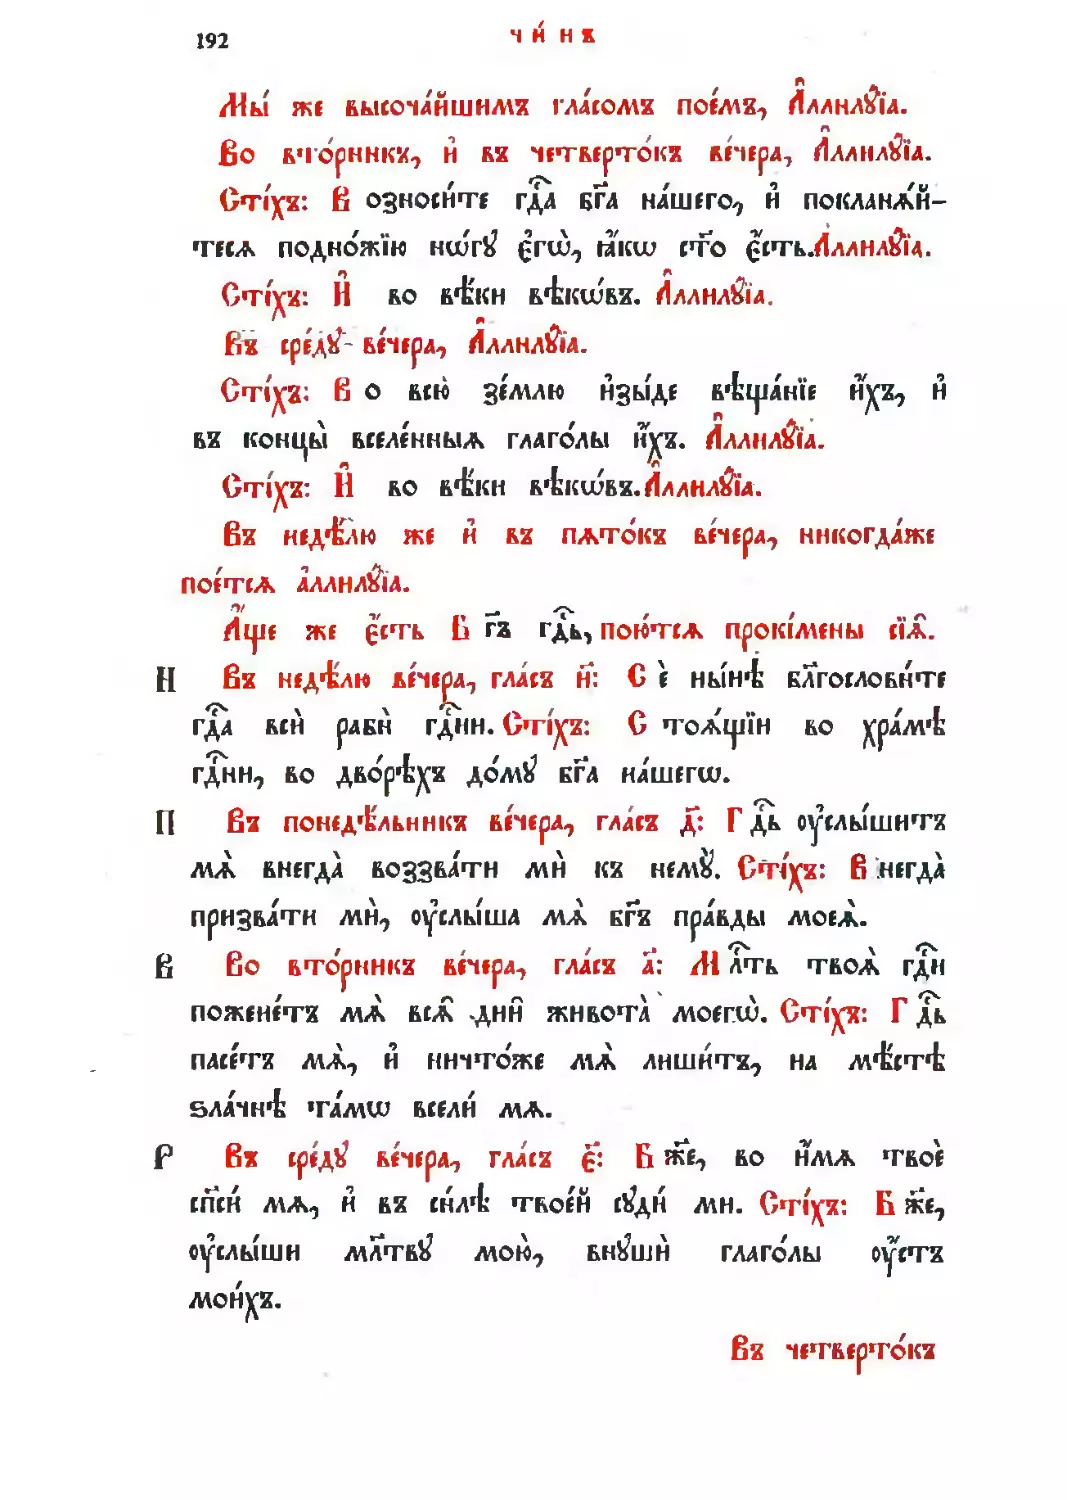 192 чи́нъ
Мы́ же высоча́йшимъ гла́сомъ пое́мъ, А҆ллилꙋ́їа.
Во вто́рникъ, и҆ въ четверто́къ ве́чера, А҆ллилꙋ́їа.
Сті́хъ: В озноси́те гдⷭ҇а бг҃а на́шего, и҆ покланѧ́й-
тесѧ подно́жїю нѡгꙋ̀ є҆гѡ̀, ꙗ҆́кѡ ст҃о є҆́сть.А҆ллилꙋ́їа.
Сті́хъ: И҆ во вѣ́ки вѣкѡ́въ. А҆ллилꙋ́їа.
Въ сре́дꙋ ве́чера, А҆ллилꙋ́їа.
Сті́хъ: В о всю̀ зе́млю и҆зы́де вѣща́нїе и҆́хъ, и҆
въ концы̀ вселе́нныѧ глаго́лы и҆́хъ. А҆ллилꙋ́їа.
Сті́хъ: И҆ во вѣ́ки вѣкѡ́въ.А҆ллилꙋ́їа.
Въ недѣ́лю же и҆ въ пѧто́къ ве́чера, никогда́же
пое́тсѧ а҆ллилꙋ́їа.
А҆́ще же є҆́сть Б г҃ъ гдⷭ҇ь, пою́тсѧ прокі́мены сїѧ̑.
Н Въ недѣ́лю ве́чера, гла́съ и҃: С ѐ ны́нѣ блг҃ослови́те
гдⷭ҇а всѝ рабѝ гдⷭ҇ни. Сті́хъ: С тоѧ́щїи во хра́мѣ
гдⷭ҇ни, во дво́рѣхъ до́мꙋ бг҃а на́шегѡ.
П Въ понедѣ́льникъ ве́чера, гла́съ д҃: Г дⷭ҇ь ᲂу҆слы́шитъ
мѧ̀ внегда̀ воззва́ти мѝ къ немꙋ̀. Сті́хъ: В негда̀
призва́ти мѝ, ᲂу҆слы́ша мѧ̀ бг҃ъ пра́вды моеѧ̀.
В Во вто́рникъ ве́чера, гла́съ а҃: М лⷭ҇ть твоѧ̀ гдⷭ҇и
пожене́тъ мѧ̀ всѧ̑ дни̑ живота̀ моегѡ̀. Сті́хъ: Г дⷭ҇ь
пасе́тъ мѧ̀, и҆ ничто́же мѧ̀ лиши́тъ, на мѣ́стѣ
ѕла́чнѣ та́мѡ всели́ мѧ.
Р Въ сре́дꙋ ве́чера, гла́съ є҃: Б ж҃е, во и҆́мѧ твоѐ
сп҃си́ мѧ, и҆ въ си́лѣ твое́й сꙋди́ ми. Сті́хъ: Б ж҃е,
ᲂу҆слы́ши мл҃твꙋ мою̀, внꙋшѝ глаго́лы ᲂу҆́стъ
мои́хъ.
Въ четверто́къ